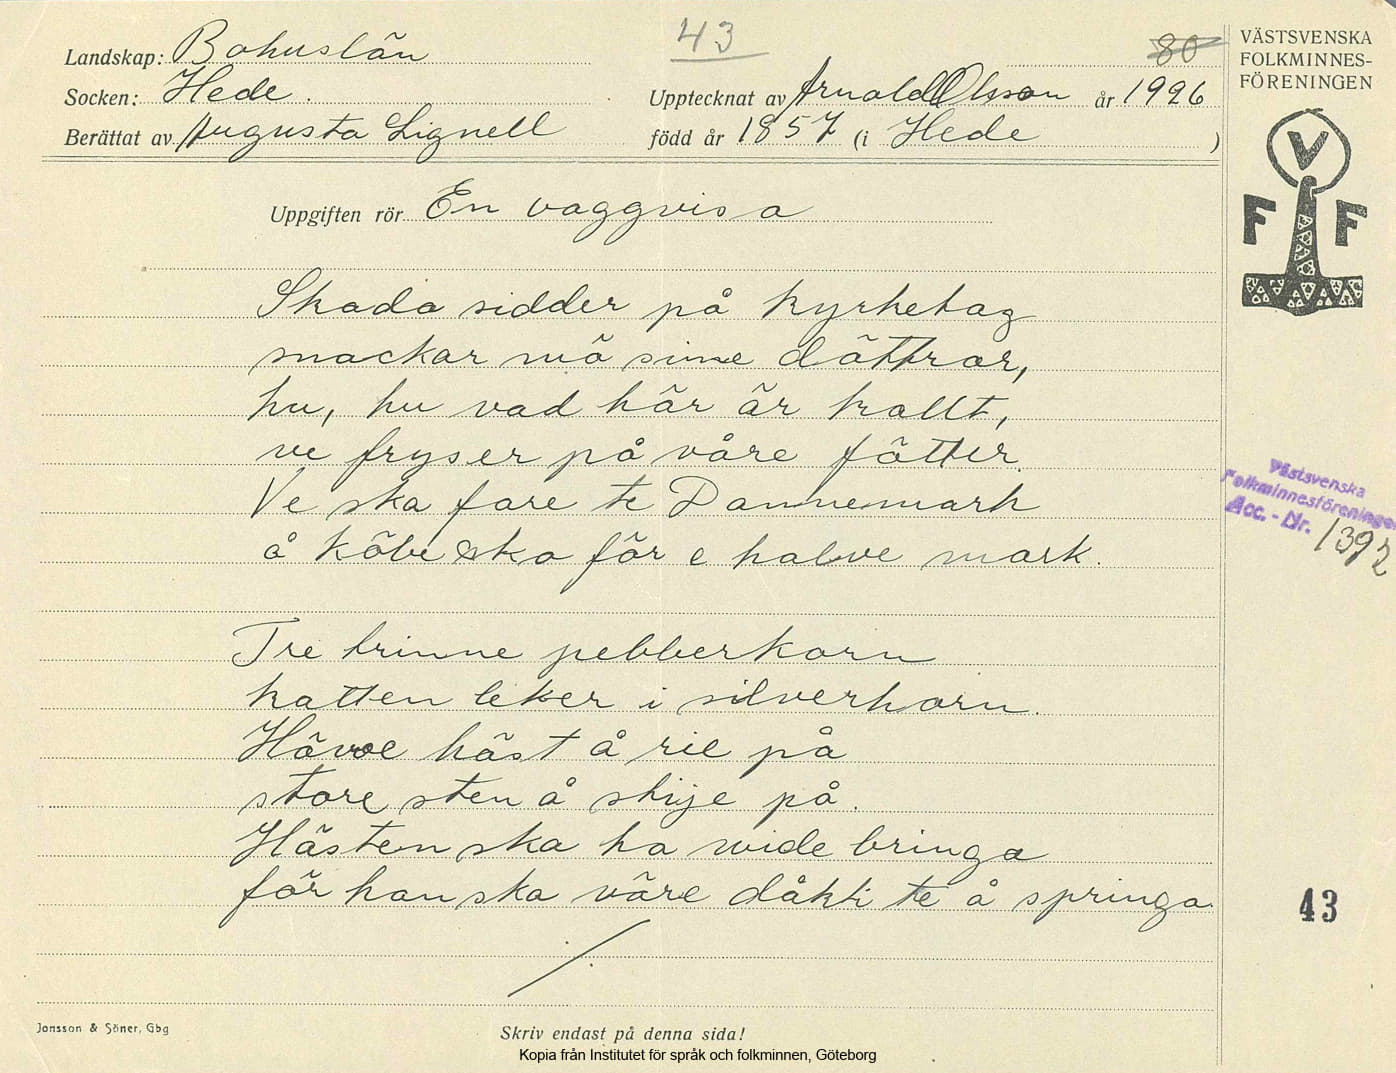 43
80
Landskap: Bohuslän
Socken: Hede.
Upptecknat av Arnold Olsson år 1926
Berättat av Augusta Lignell född år 1857 (i Hede )
VÄSTSVENSKA
FOLKMINNES-
FÖRENINGEN
V
F F
Uppgiften rör En vaggvisa
Skada sidder på kyrketag
snackar mä sine döttrar,
hu, hu vad här är kallt,
ve fryser på våre fötter.
Ve ska fare te Dannemark
å köbe sko för e halve mark.
Tre brinne pebberkorn
katten leker i silverhorn.
häst å rie på
store sten å skye på.
Hästen ska ha wide bringa
för han ska väre dåkti te å springa.
Västsvenska
Folkminnesföreningen
Acc. - Nr. 1392
43
Jonsson & Söner, Gbg
Skriv endast på denna sida!
Kopia från Institutet för språk och folkminnen, Göteborg